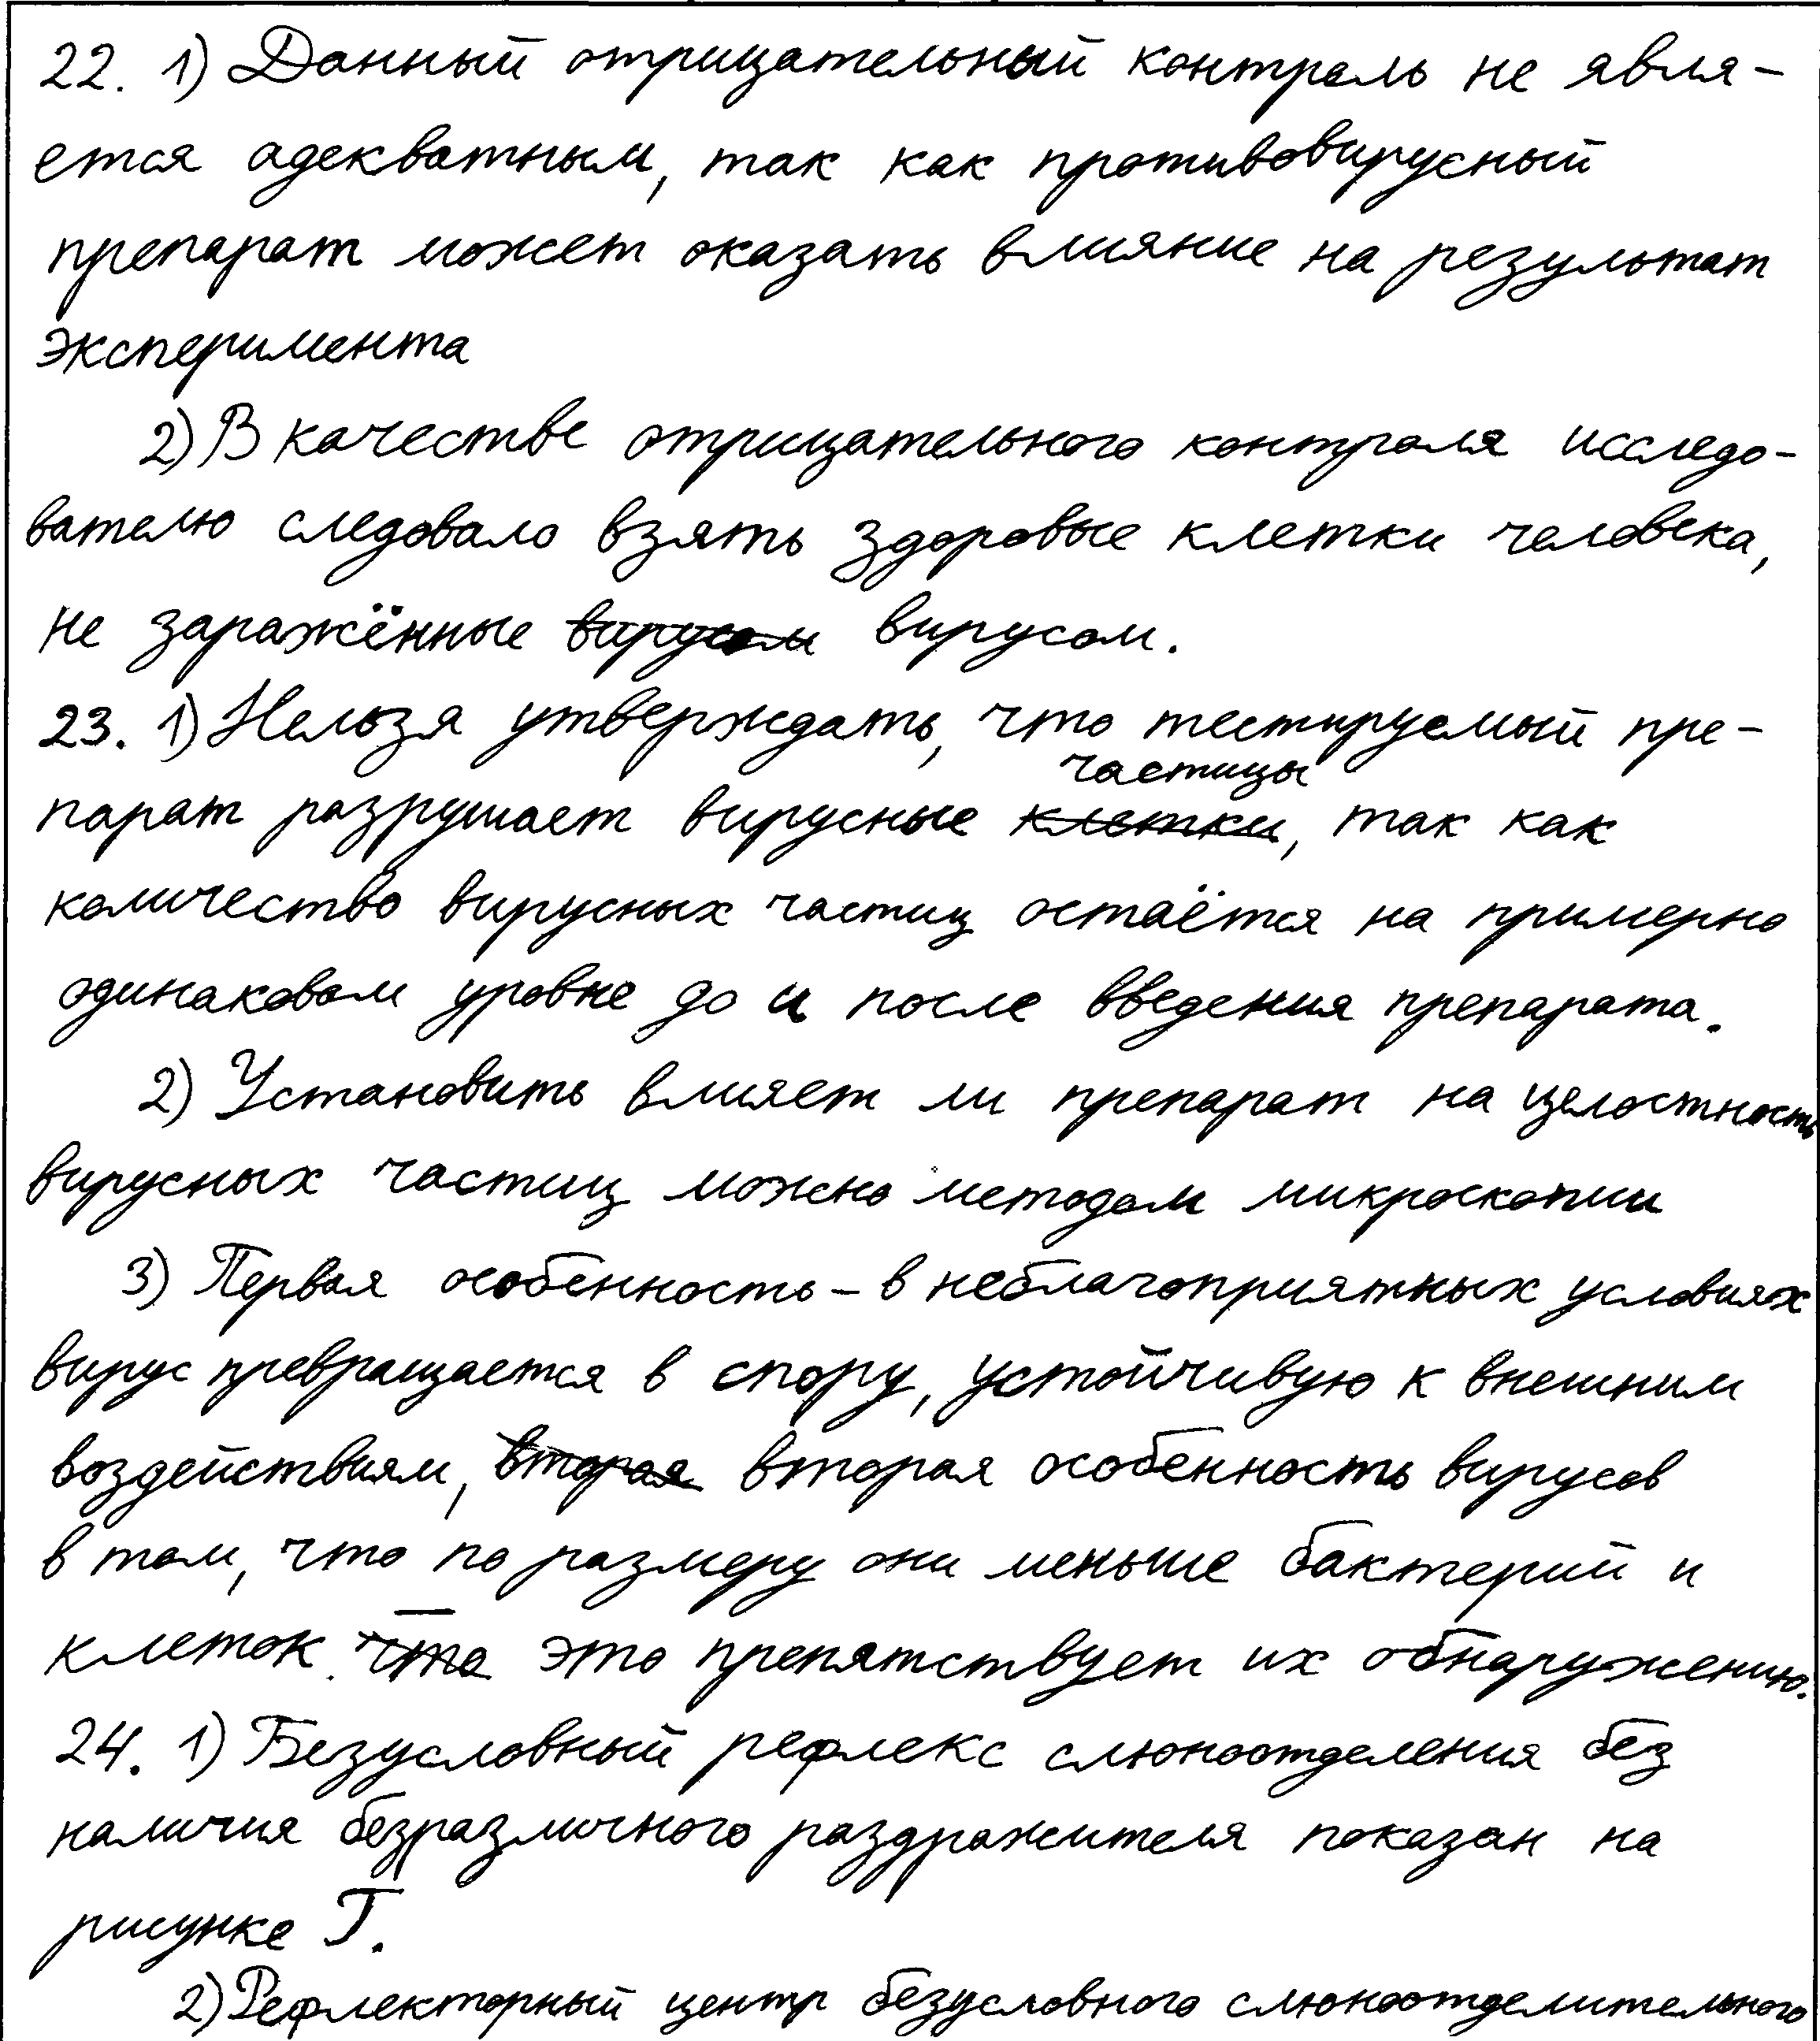 22. 1) Данный отрицательный контроль не явля-
ется адекватным, так как противовирусный
препарат может оказать влияние на результат
эксперимента
2) В качестве отрицательного контроля исследо-
вателю следовало взять здоровые клетки человека,
не заражённые вирусом вирусом.
23. 1) Нельзя утверждать, что тестируемый пре-
частицы
парат разрушает вирусные клетки, так как
количество вирусных частиц остаётся на примерно
одинаковом уровне до и после введения препарата.
2) Установить влияет ли препарат на целостность
вирусных частиц можно методом микроскопии
3) Первая особенность – в неблагоприятных условиях
вирус превращается в спору, устойчивую к внешним
воздействиям, вторая вторая особенность вирусов
в том, что по размеру они меньше бактерий и
клеток. что это препятствует их обнаружению.
24. 1) Безусловный рефлекс слюноотделения без
наличия безразличного раздражителя показан на
рисунке Г.
2) Рефлекторный центр безусловного слюноотделительного